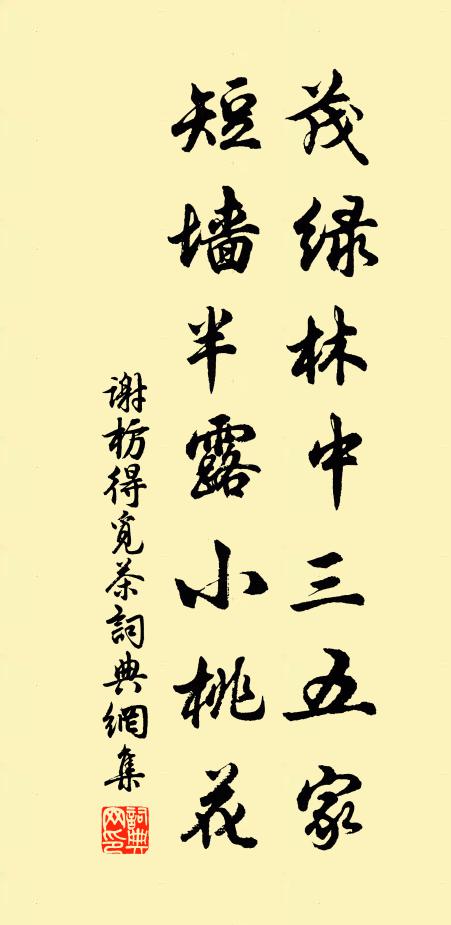 茂绿林中三五家
短墙半露小桃花
谢枋得觅茶詞典網集
詞典网印